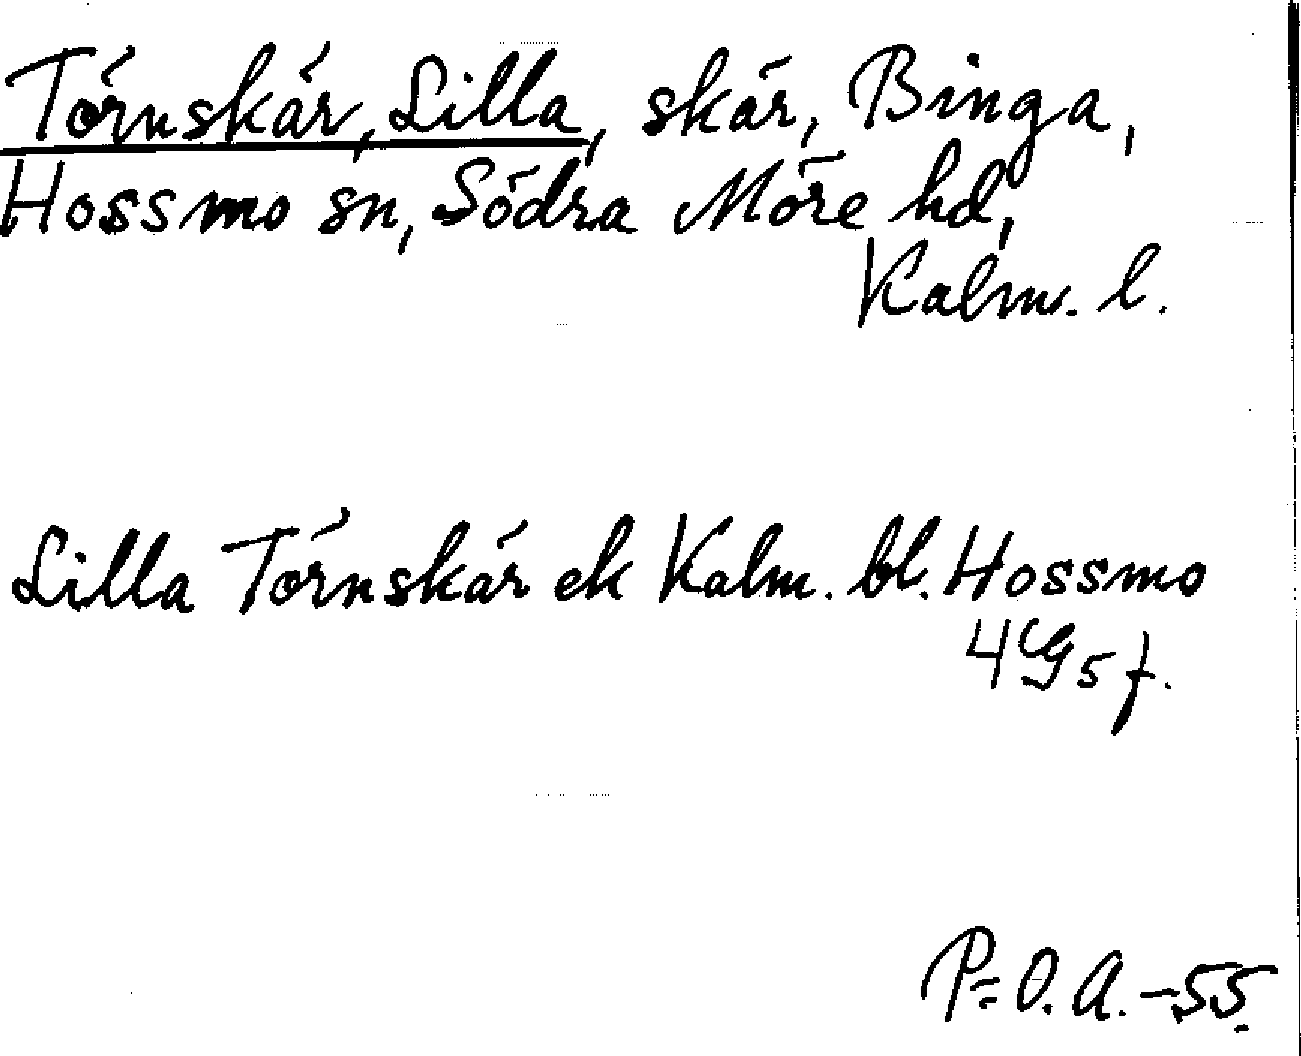 Törnskär, Lilla, skär, Binga,
Hossmo sn, Södra Möre hd,
Kalm. l.
Lilla Törnskär ek Kalm. bl. Hossmo
4G5f.
P-O.A.-55.